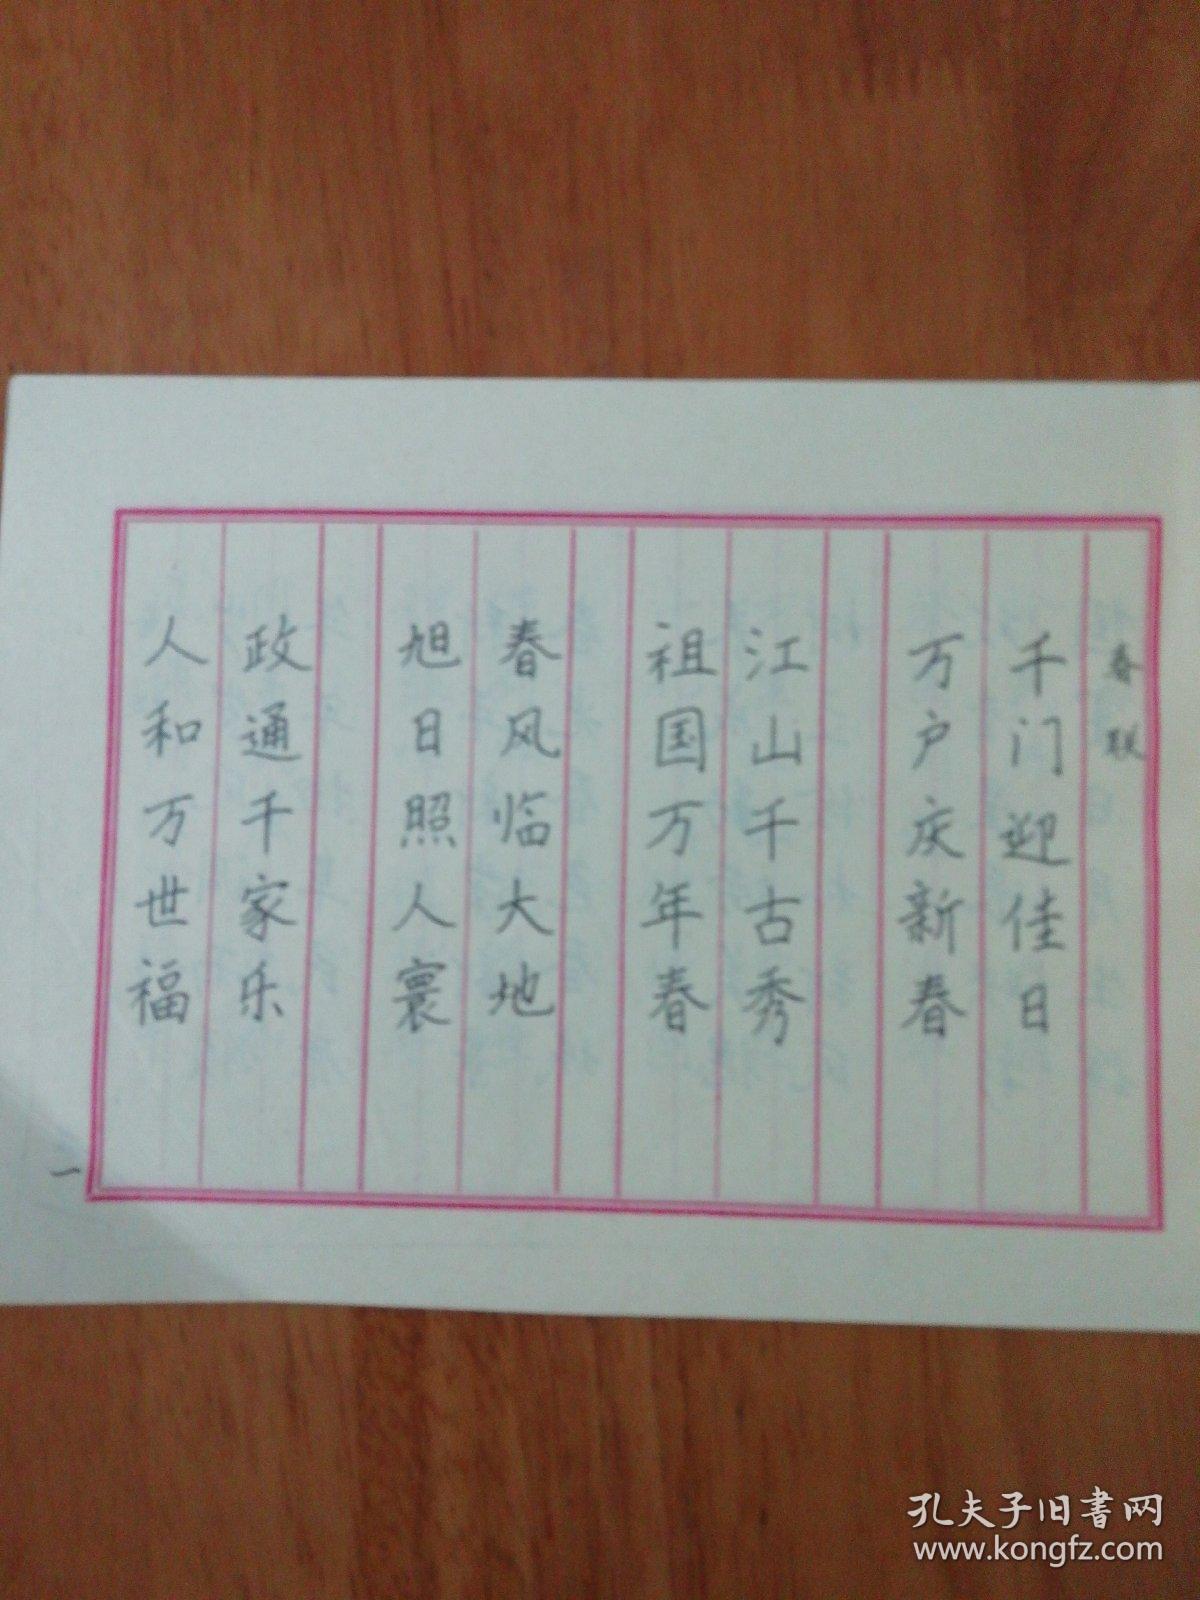 春联
千门迎佳日
万户庆新春
江山千古秀
祖国万年春
春风临大地
旭日照人寰
政通千家乐
人和万世福
一
孔夫子旧书网
www.kongfz.com